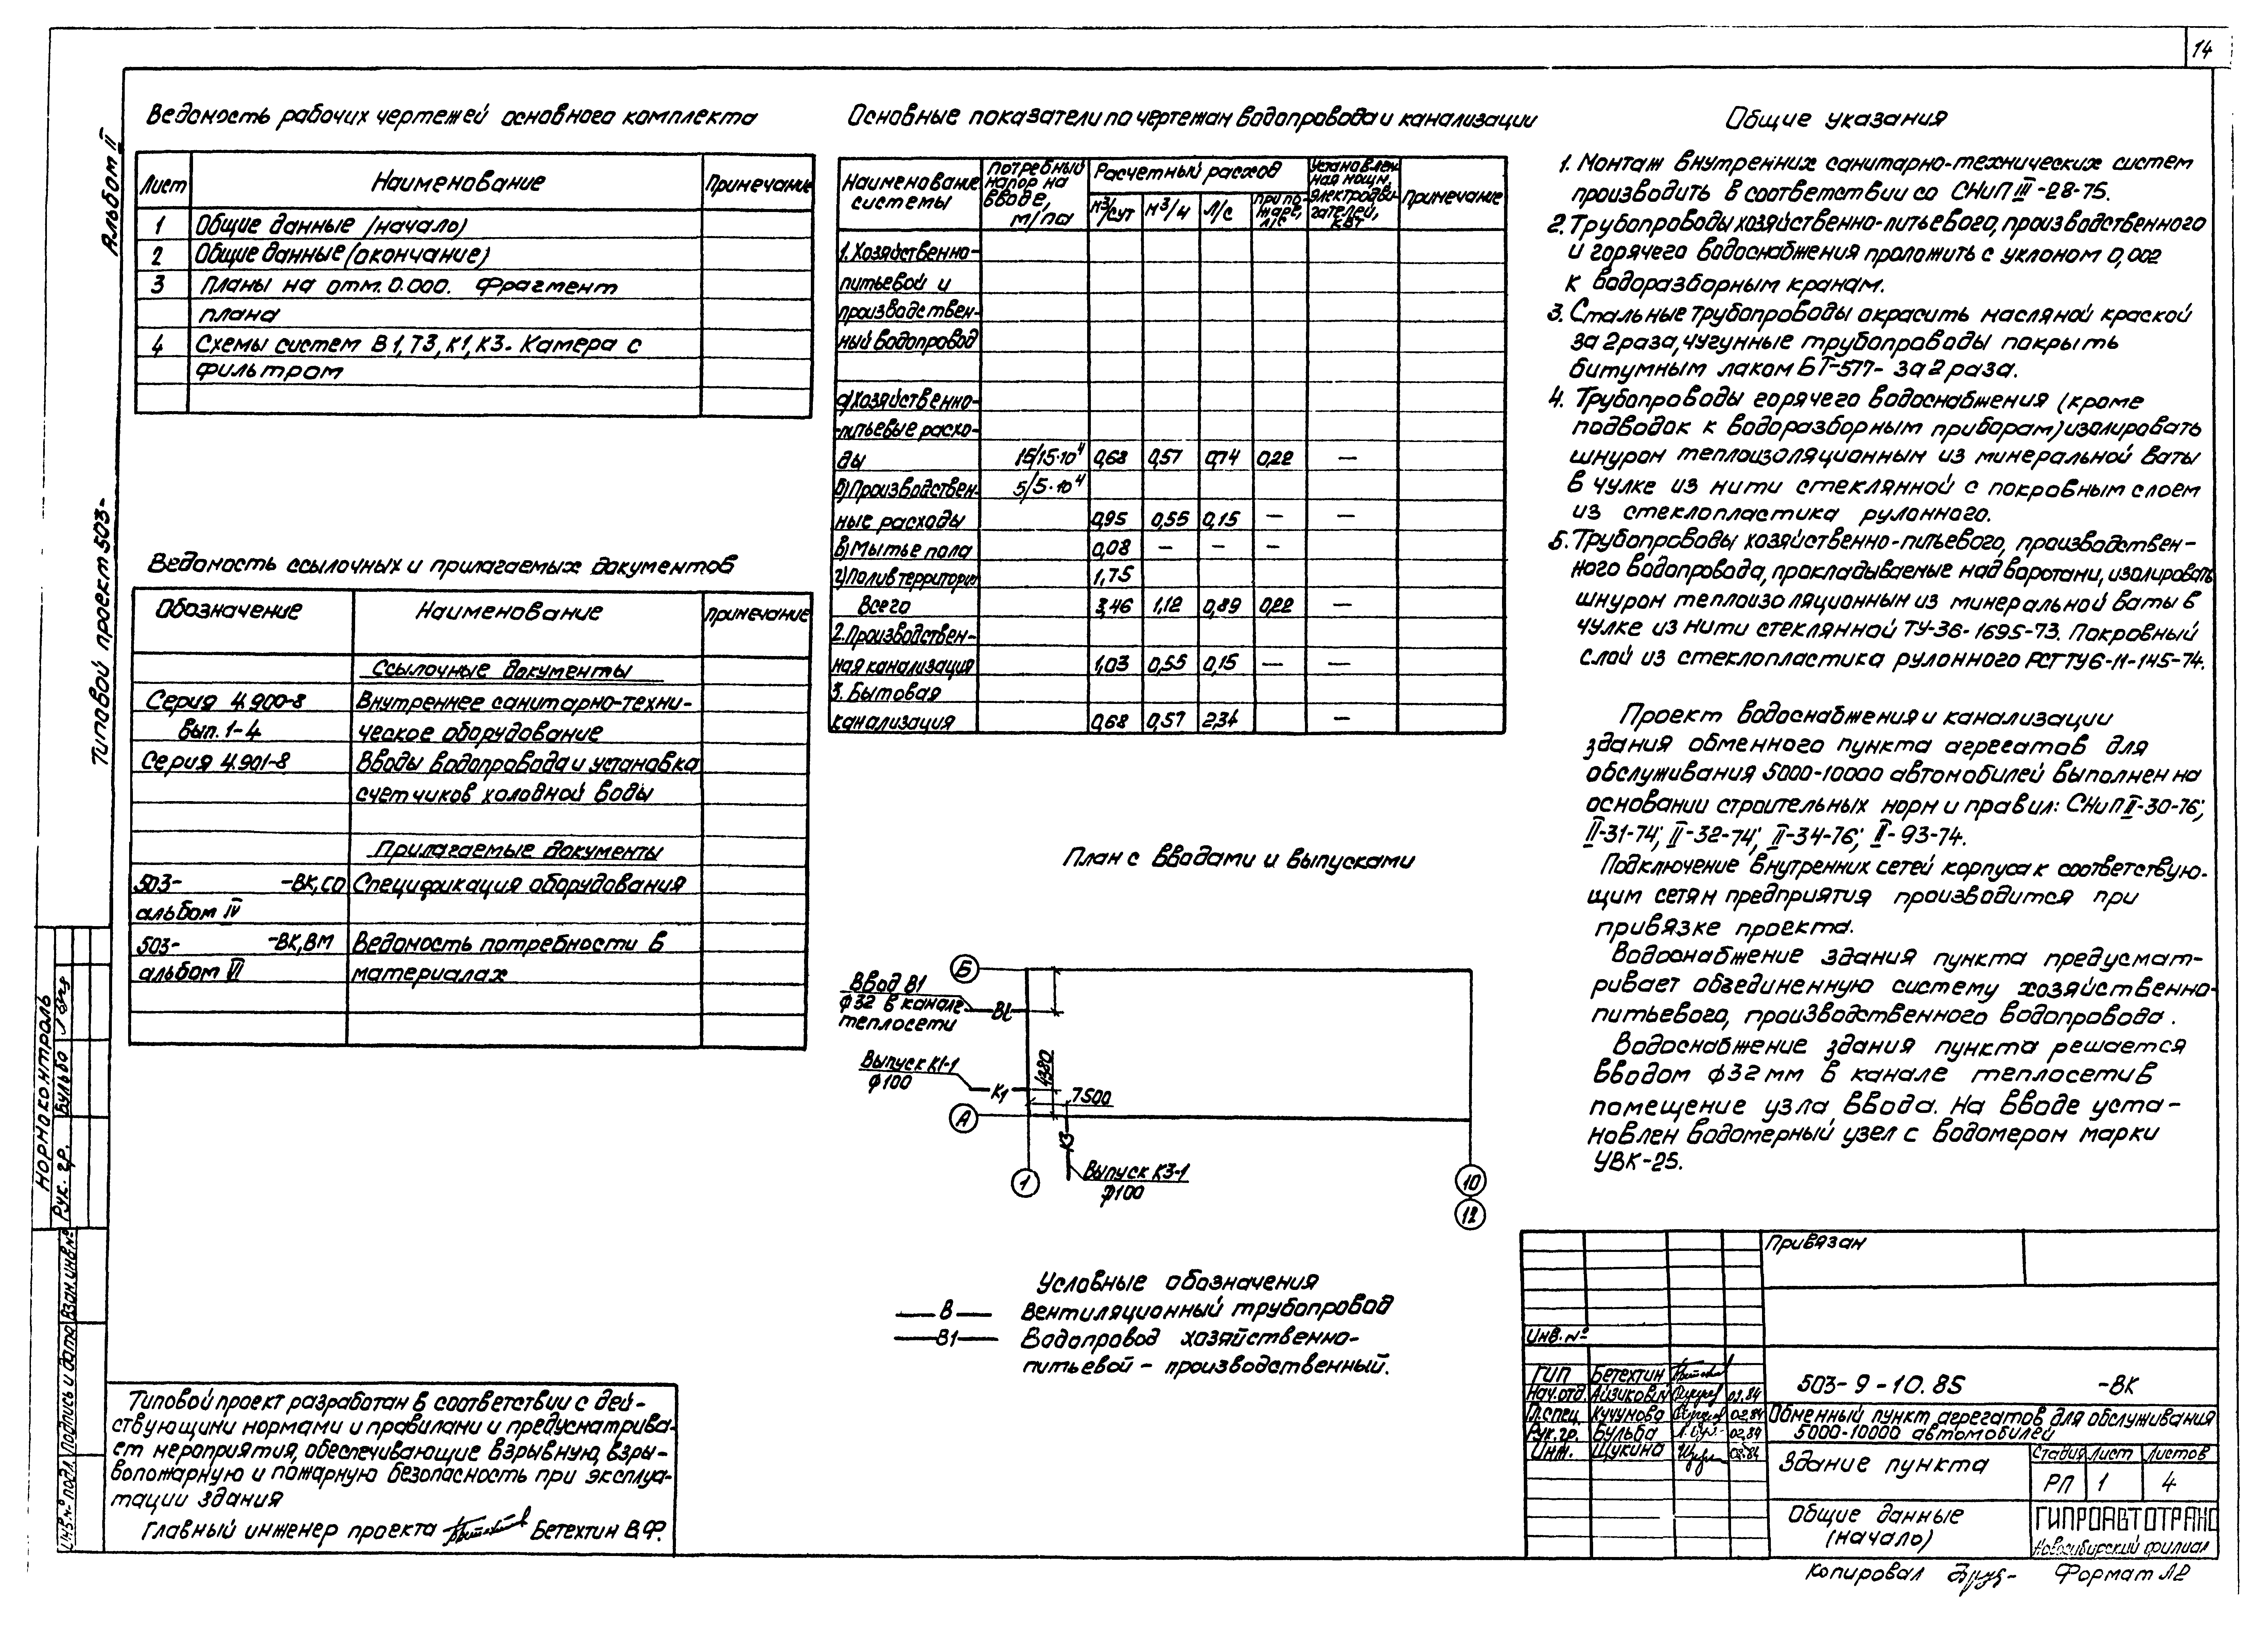 14
Альбом II
Типовой проект 503-
Ведомость рабочих чертежей основного комплекта
Лист Наименование Примечание
1 Общие данные (начало)
2 Общие данные (окончание)
3 Планы на отм. 0.000. Фрагмент
плана
4 Схемы систем В1, Т3, К1, К3. Камера с
фильтром
Ведомость ссылочных и прилагаемых документов
Обозначение Наименование Примечание
Ссылочные документы
Серия 4.900-8 Внутреннее санитарно-техни-
вып. 1-4 ческое оборудование
Серия 4.901-8 Вводы водопровода и установка
счетчиков холодной воды
Прилагаемые документы
503- -ВК,СО Спецификация оборудования
альбом IV
503- -ВК,ВМ Ведомость потребности в
альбом VI материалах
Основные показатели по чертежам водопровода и канализации
Наименование системы
Потребный напор на вводе, м/па
Расчетный расход
м³/сут м³/ч л/с при пожаре, л/с
Установленная мощн. электродвигателей, кВт
Примечание
1. Хозяйственно-
питьевой и
производствен-
ный водопровод
а) Хозяйственно-
-питьевые расхо-
ды 15/15·10⁴ 0,68 0,57 0,74 0,22 —
б) Производствен- 5/5·10⁴
ные расходы 0,95 0,55 0,15 — —
в) Мытье пола 0,08 — — —
г) Полив территории 1,75
Всего 3,46 1,12 0,89 0,22 —
2. Производствен-
ная канализация 1,03 0,55 0,15 — —
3. Бытовая
канализация 0,68 0,57 2,34 —
План с вводами и выпусками
Б
Ввод В1
ф32 в канале
теплосети
В1
Выпуск К1-1
ф100
К1
4380
7500
А
К3
Выпуск К3-1
ф100
1
10
12
Условные обозначения
—В— Вентиляционный трубопровод
—В1— Водопровод хозяйственно-
питьевой - производственный.
Общие указания
1. Монтаж внутренних санитарно-технических систем
производить в соответствии со СНиП III-28-75.
2. Трубопроводы хозяйственно-питьевого, производственного
и горячего водоснабжения проложить с уклоном 0,002
к водоразборным кранам.
3. Стальные трубопроводы окрасить масляной краской
за 2 раза, чугунные трубопроводы покрыть
битумным лаком БТ-577- за 2 раза.
4. Трубопроводы горячего водоснабжения (кроме
подводок к водоразборным приборам) изолировать
шнуром теплоизоляционным из минеральной ваты
в чулке из нити стеклянной с покровным слоем
из стеклопластика рулонного.
5. Трубопроводы хозяйственно-питьевого, производствен-
ного водопровода, прокладываемые над воротами, изолировать
шнуром теплоизоляционным из минеральной ваты в
чулке из нити стеклянной ТУ-36-1695-73. Покровный
слой из стеклопластика рулонного РСТ ТУ6-11-145-74.
Проект водоснабжения и канализации
здания обменного пункта агрегатов для
обслуживания 5000-10000 автомобилей выполнен на
основании строительных норм и правил: СНиП II-30-76;
II-31-74; II-32-74; II-34-76; II-93-74.
Подключение внутренних сетей корпуса к соответствую-
щим сетям предприятия производится при
привязке проекта.
Водоснабжение здания пункта предусмат-
ривает объединенную систему хозяйственно-
питьевого, производственного водопровода.
Водоснабжение здания пункта решается
вводом ф32мм в канале теплосети в
помещение узла ввода. На вводе уста-
новлен водомерный узел с водомером марки
УВК-25.
Типовой проект разработан в соответствии с дей-
ствующими нормами и правилами и предусматрива-
ет мероприятия, обеспечивающие взрывную, взры-
вопожарную и пожарную безопасность при эксплуа-
тации здания
Главный инженер проекта Бетехтин В.Ф.
Нормоконтроль
Рук. гр. Бульба
Инв.№ подл. Подпись и дата Взам.инв.№
Привязан
Инв.№
ГИП Бетехтин
Нач.отд. Айзикович 02.84
Гл.спец. Кучумова 02.84
Рук.гр. Бульба 02.84
Инж. Щукина 02.84
503-9-10.85 -ВК
Обменный пункт агрегатов для обслуживания
5000-10000 автомобилей
Здание пункта
Стадия Лист Листов
РП 1 4
Общие данные
(начало)
ГИПРОАВТОТРАНС
Новосибирский филиал
Копировал Формат А2